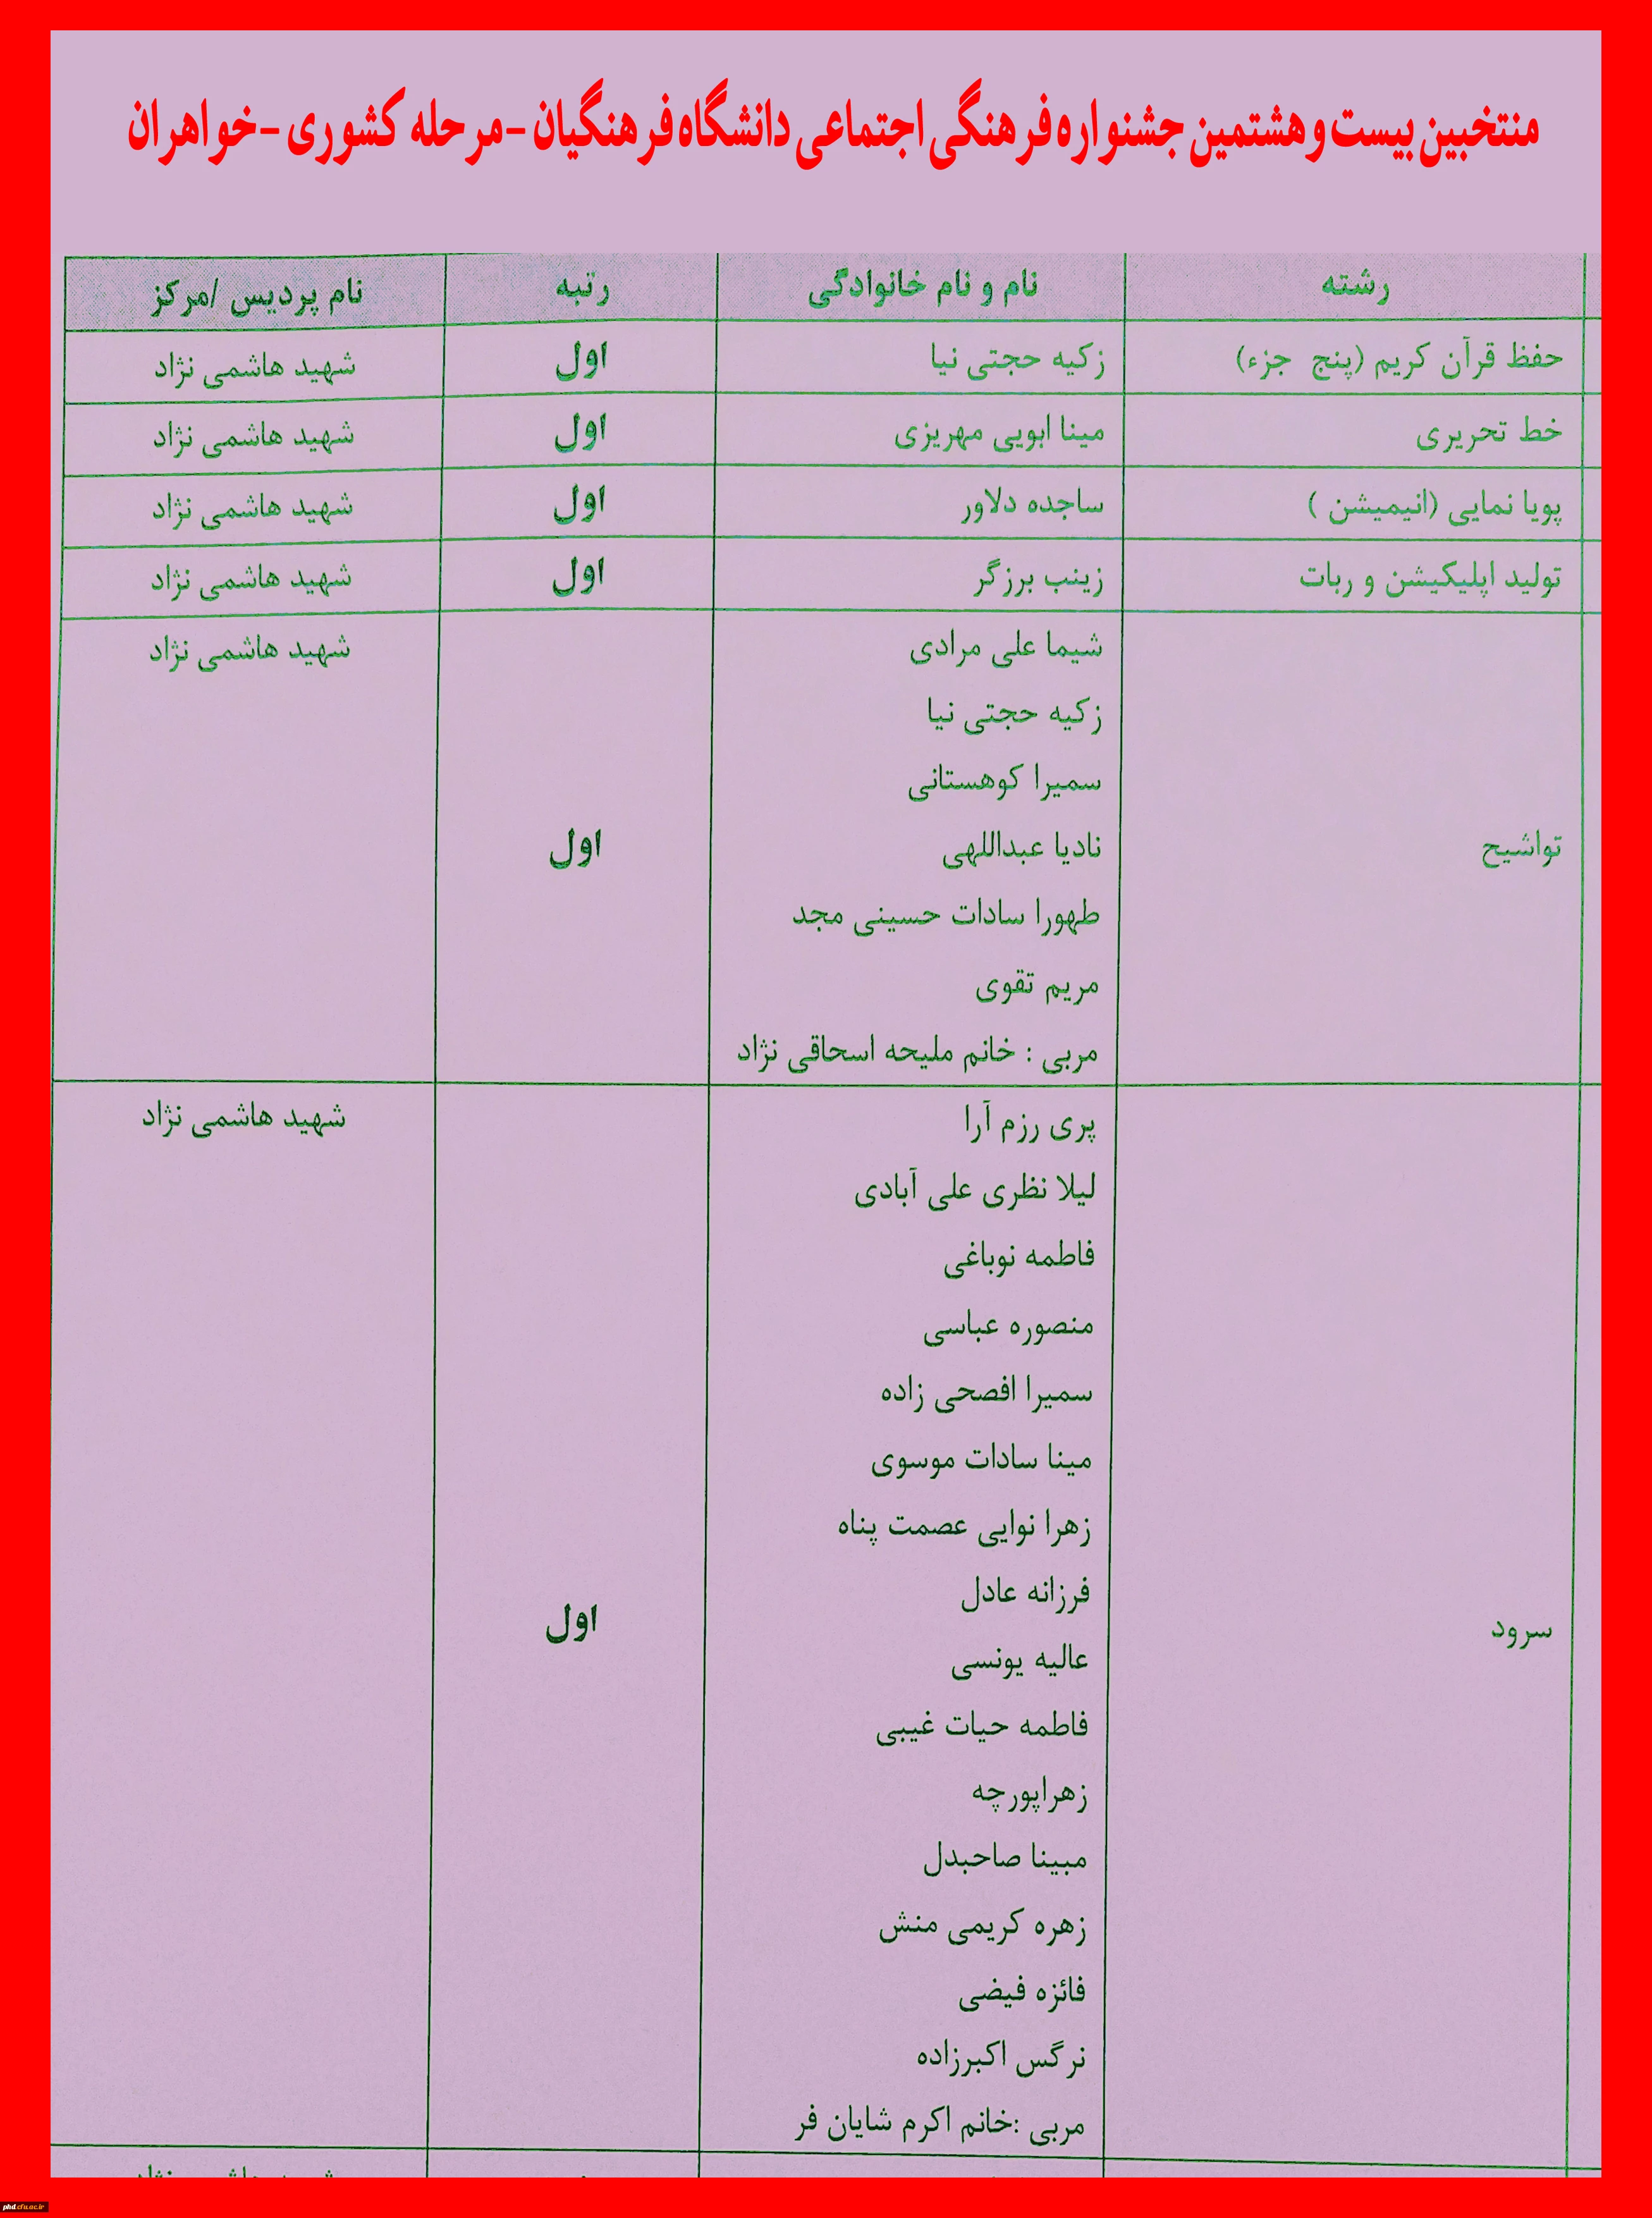 منتخبین بیست و هشتمین جشنواره فرهنگی اجتماعی دانشگاه فرهنگیان - مرحله کشوری - خواهران
رشته نام و نام خانوادگی رتبه نام پردیس /مرکز
حفظ قرآن کریم (پنج جزء) زکیه حجتی نیا اول شهید هاشمی نژاد
خط تحریری مینا ابویی مهریزی اول شهید هاشمی نژاد
پویا نمایی (انیمیشن ) ساجده دلاور اول شهید هاشمی نژاد
تولید اپلیکیشن و ربات زینب برزگر اول شهید هاشمی نژاد
شیما علی مرادی شهید هاشمی نژاد
زکیه حجتی نیا
سمیرا کوهستانی
تواشیح نادیا عبداللهی اول
طهورا سادات حسینی مجد
مریم تقوی
مربی : خانم ملیحه اسحاقی نژاد
پری رزم آرا شهید هاشمی نژاد
لیلا نظری علی آبادی
فاطمه نوباغی
منصوره عباسی
سمیرا افصحی زاده
مینا سادات موسوی
زهرا نوایی عصمت پناه
فرزانه عادل
سرود اول
عالیه یونسی
فاطمه حیات غیبی
زهراپورچه
مبینا صاحبدل
زهره کریمی منش
فائزه فیضی
نرگس اکبرزاده
مربی :خانم اکرم شایان فر
phd.cfu.ac.ir